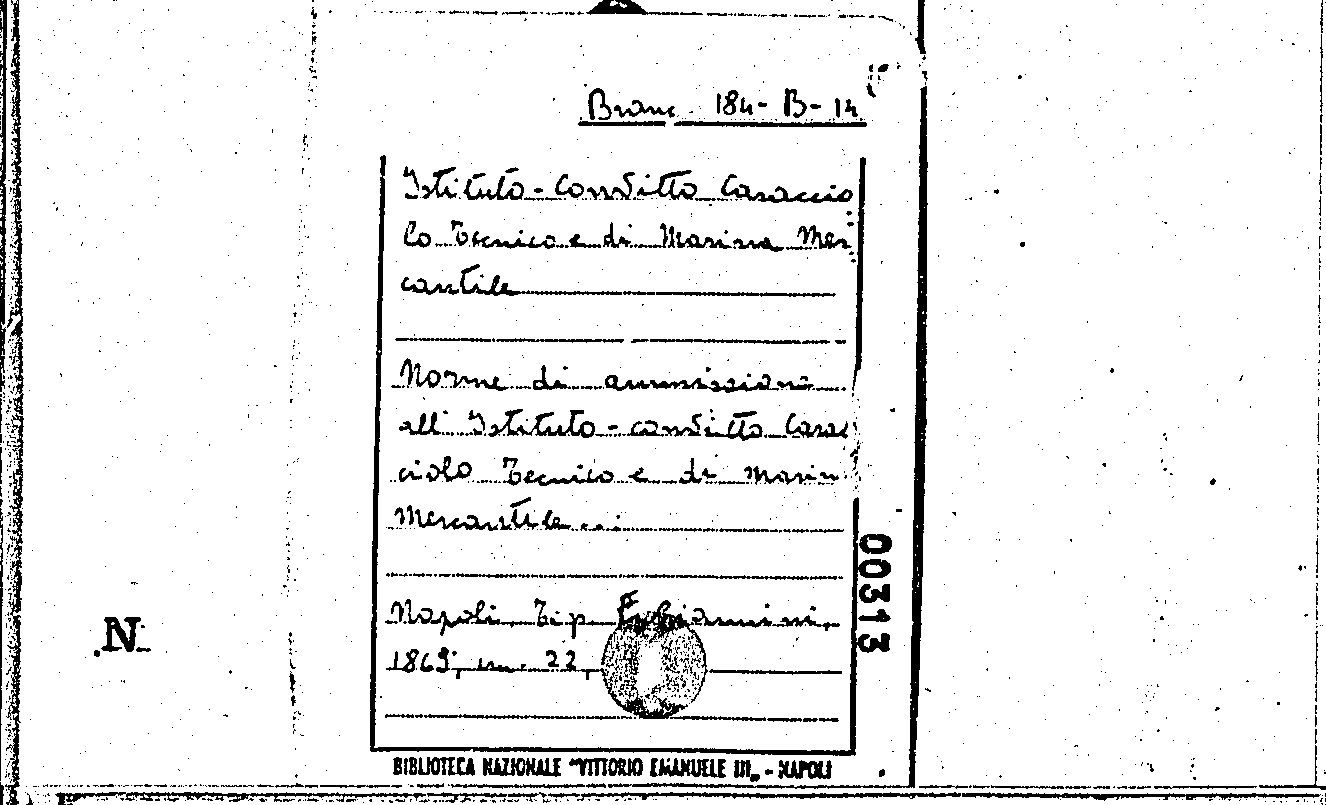 Branc 184-B-14
Istituto-Convitto Caraccio
lo Tecnico e di Marina Mer
cantile
Norme di ammissione
all'Istituto-convitto Carac
ciolo Tecnico e di Marin
Mercantile...
Napoli, Tip. Giannini,
1869, in. 22,
00313
.N.
BIBLIOTECA NAZIONALE "VITTORIO EMANUELE III" - NAPOLI